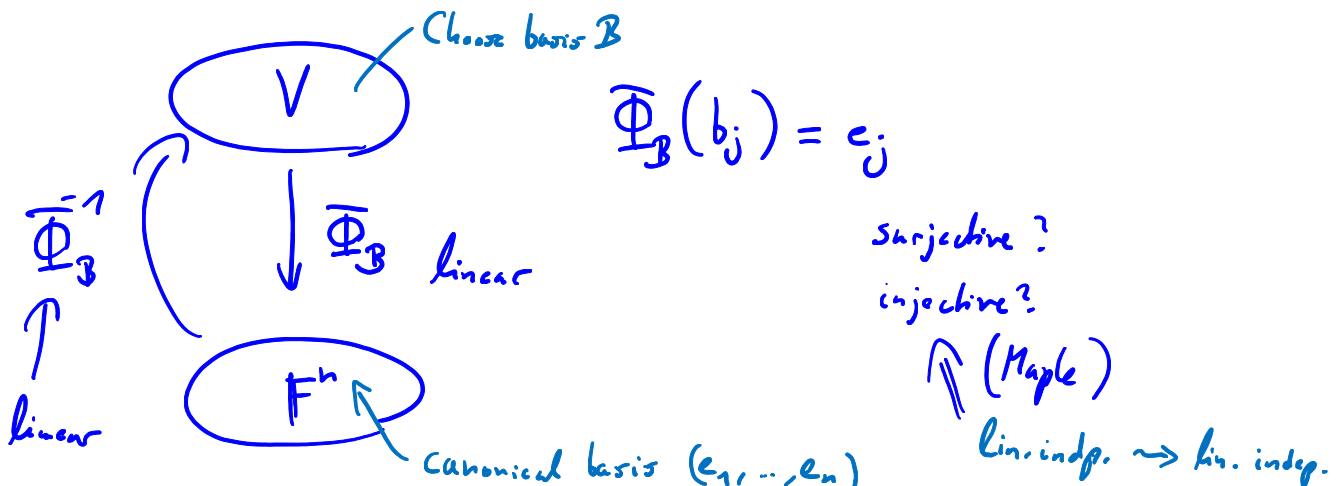 Choose basis B
V
Φ_B(b_j) = e_j
Φ_B^-1
Φ_B
linear
surjective?
injective?
(Maple)
F^n
linear
canonical basis (e_1, ..., e_n)
lin. indp. ⇝ lin. indep.